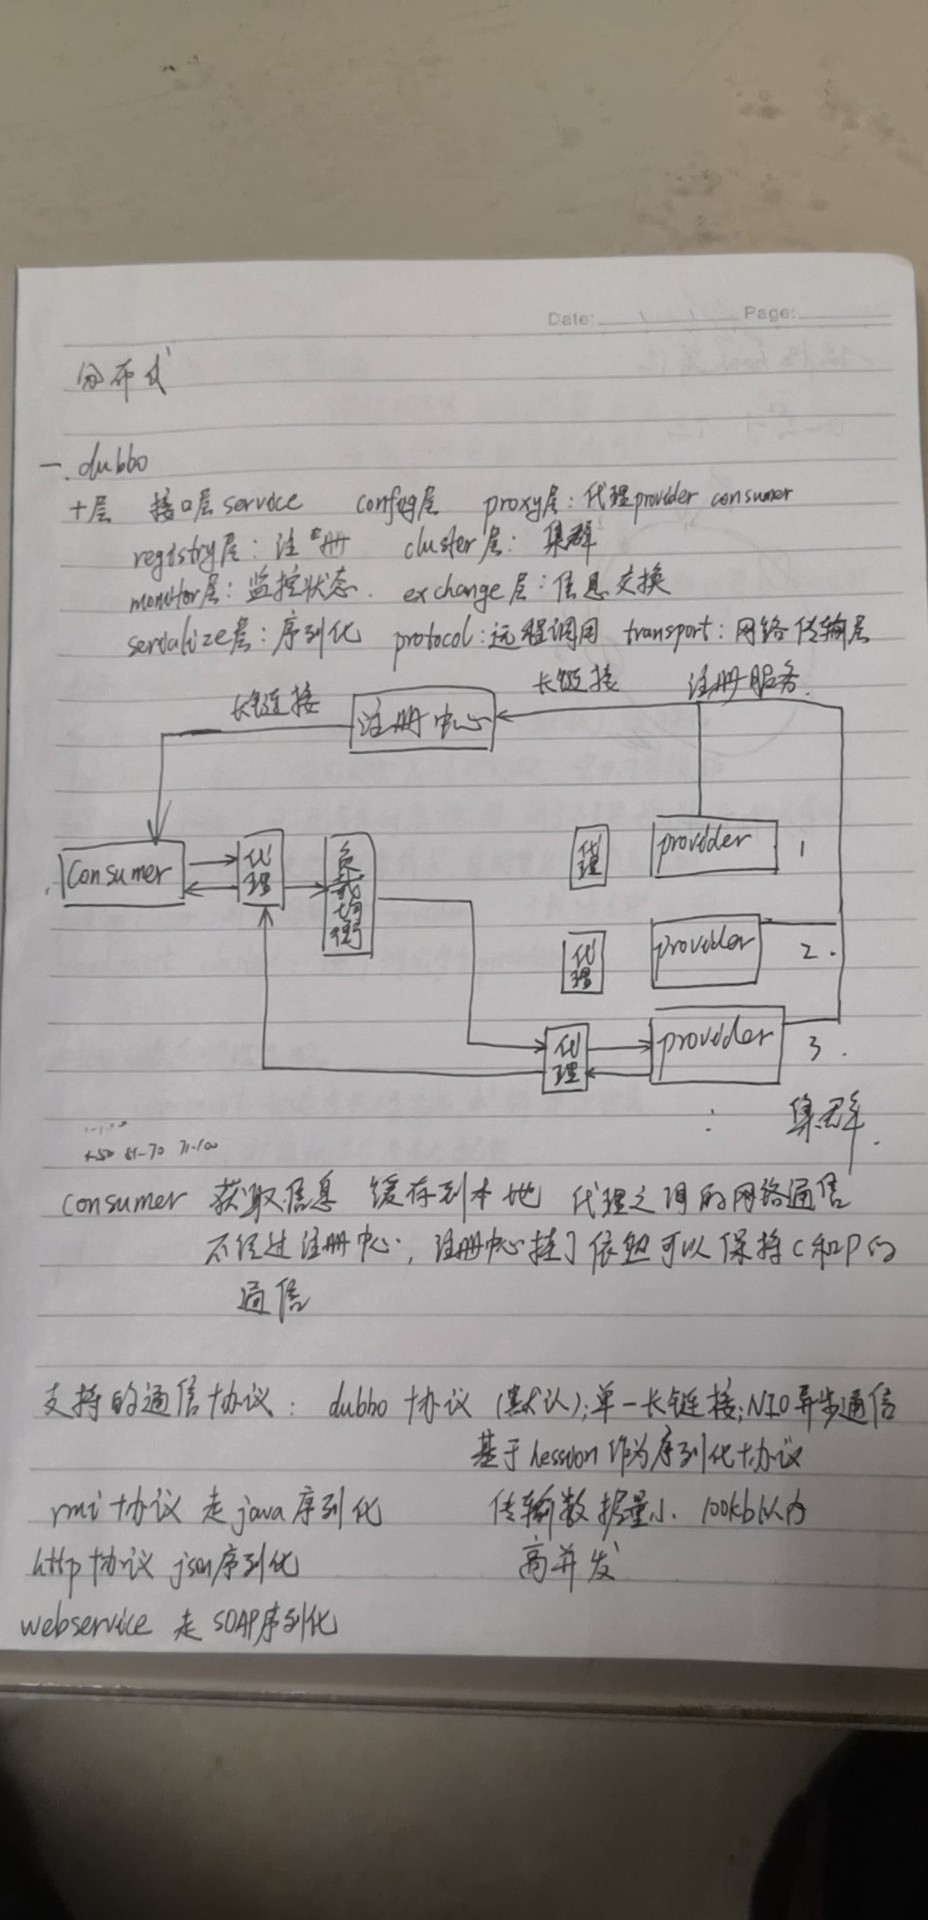 Date: Page:
分布式
一. dubbo
十层 接口层service config层 proxy层:代理provider consumer
registry层:注册 cluster层:集群
monitor层:监控状态. exchange层:信息交换
serialize层:序列化 protocol:远程调用 transport:网络传输层
长链接 注册中心 长链接 注册服务.
consumer 代理 负载均衡 代理 provider 1
代理 provider 2.
代理 provider 3.
集群.
51-70 71-100
consumer 获取信息 缓存到本地 代理之间的网络通信
不经过注册中心, 注册中心挂了依然可以保持c和p的
通信
支持的通信协议: dubbo协议(默认);单一长链接;NIO异步通信
基于hession作为序列化协议
rmi协议 走java序列化 传输数据量小 100kb以内
http协议 json序列化 高并发
webservice 走SOAP序列化